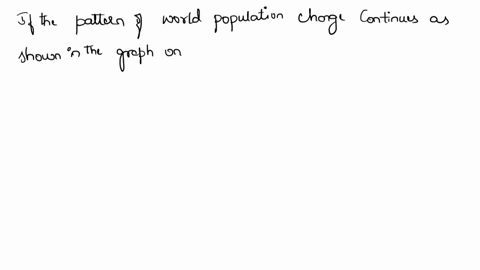 If the pattern of world population change Continues as
shown in the graph on